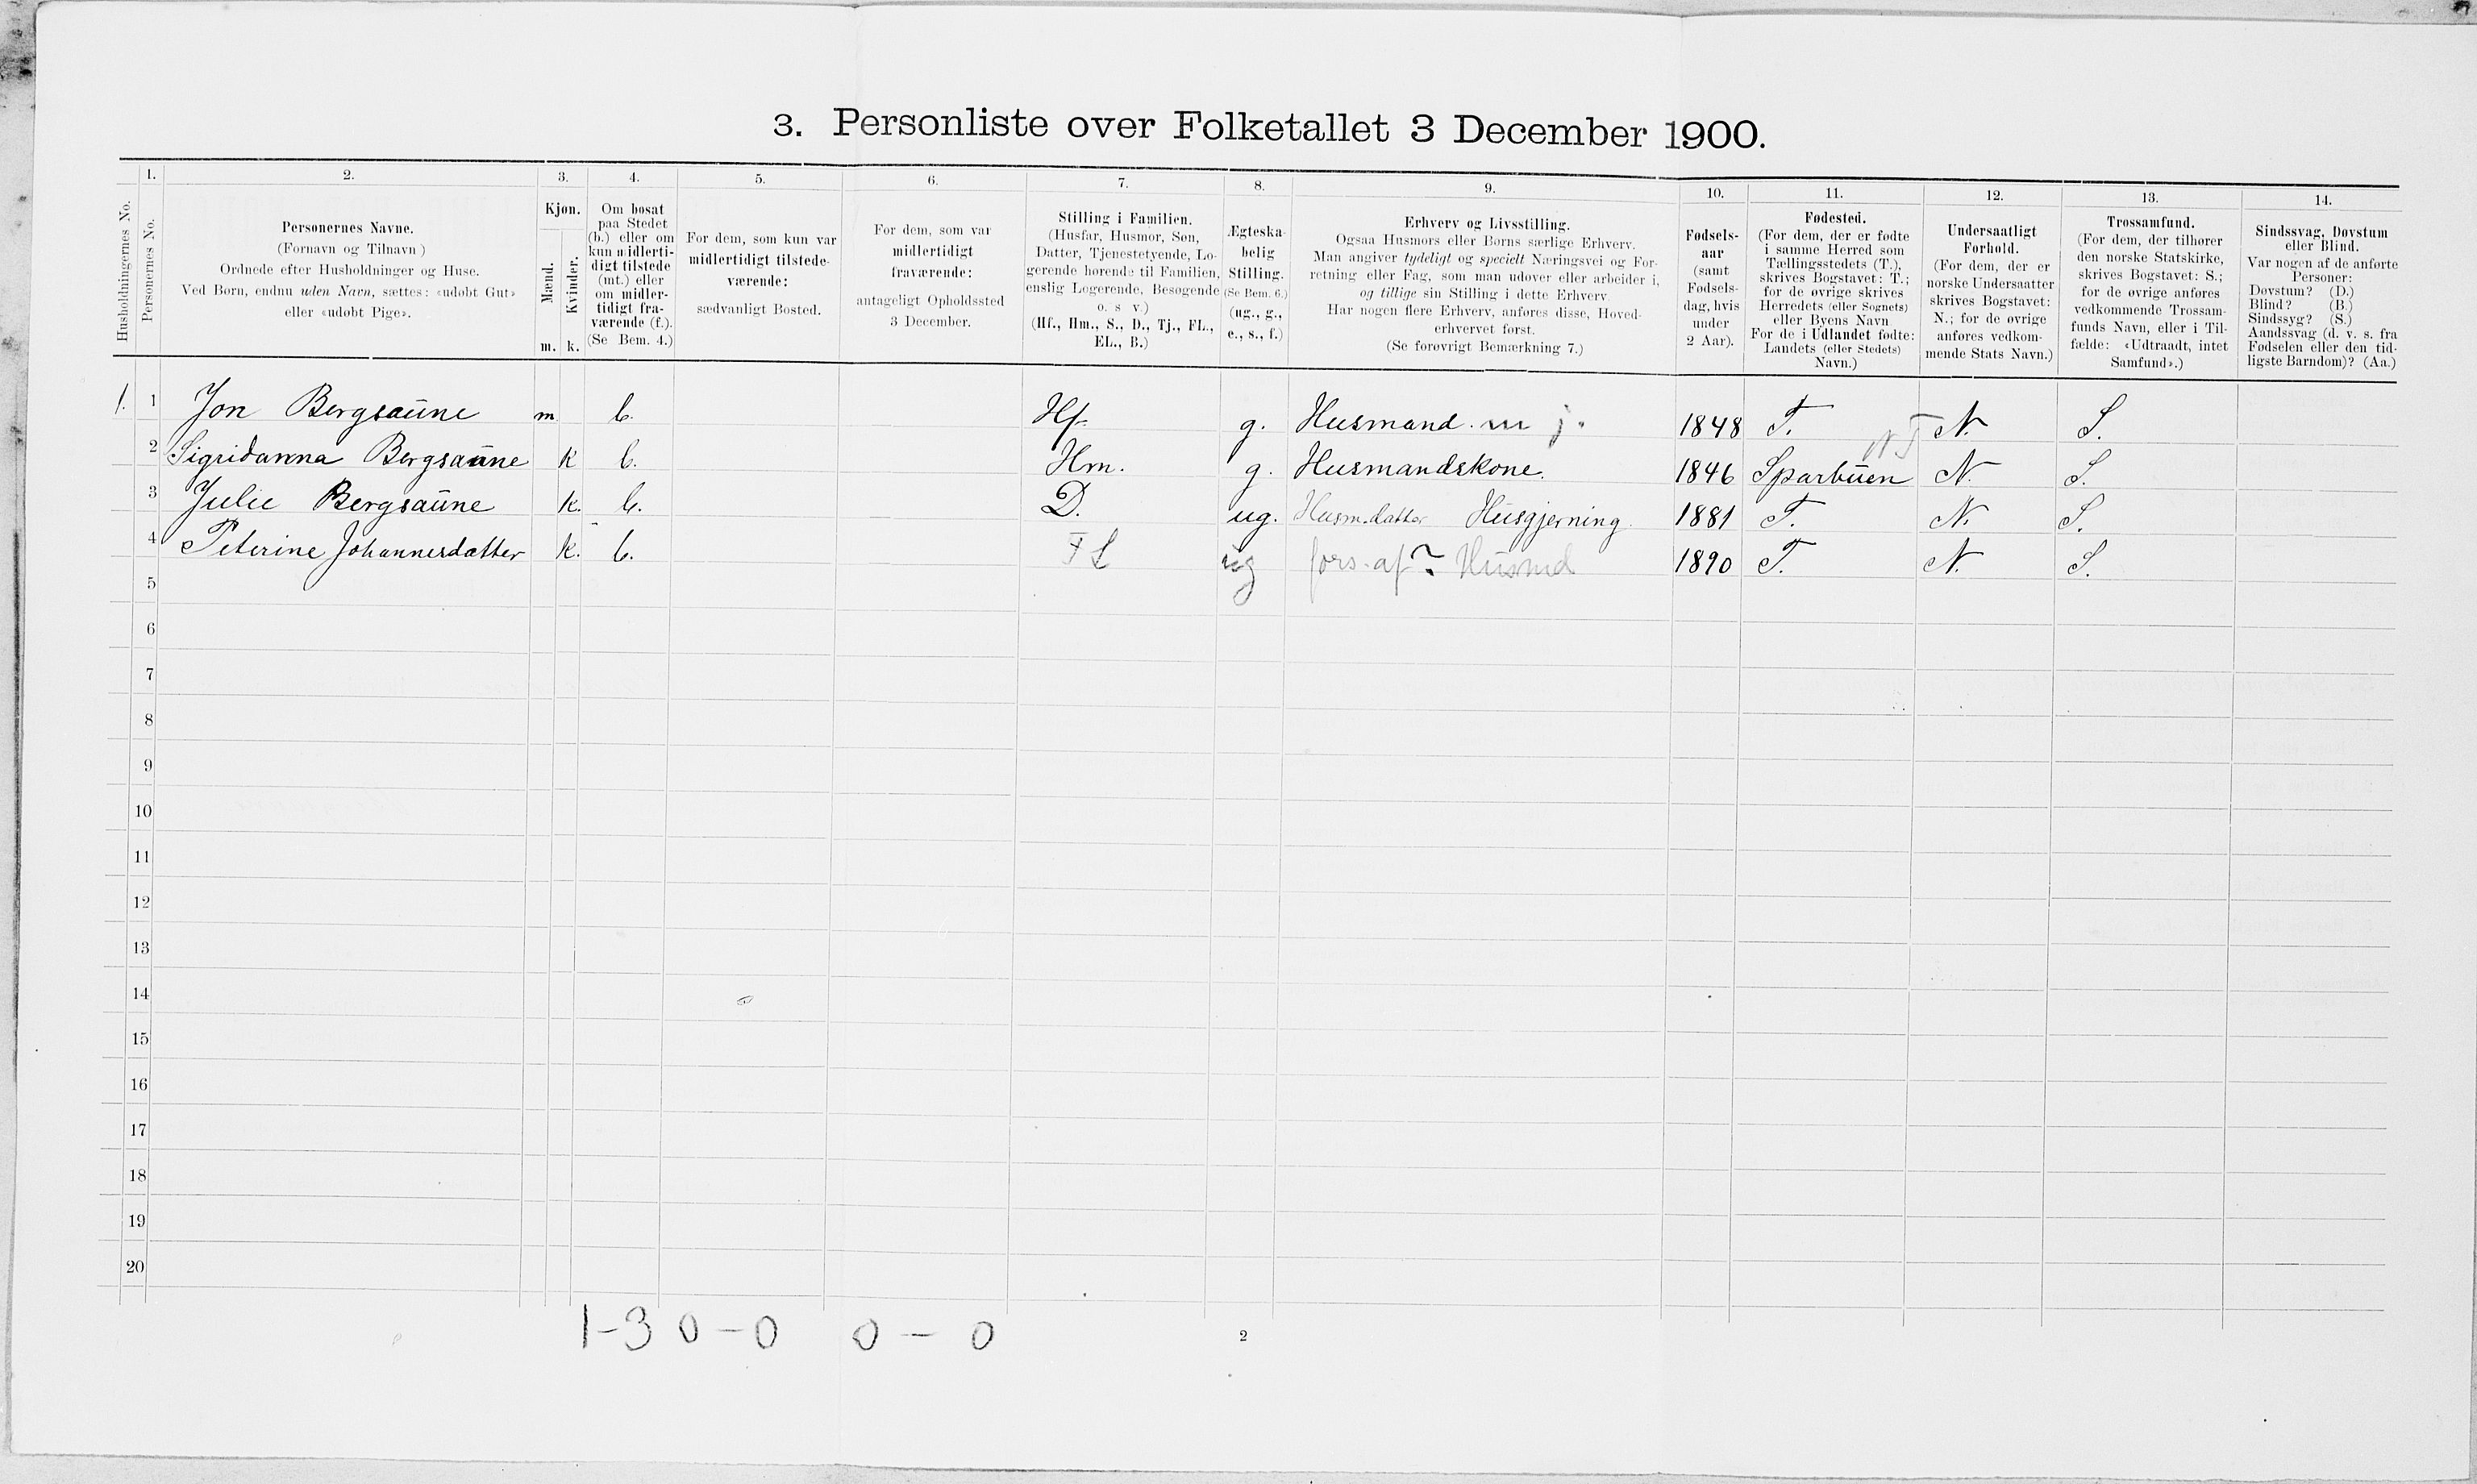 3. Personliste over Folketallet 3 December 1900.
Husholdningernes No.
1.
Personernes No.
2.
Personernes Navne.
(Fornavn og Tilnavn)
Ordnede efter Husholdninger og Huse.
Ved Børn, endnu uden Navn, sættes: «udøbt Gut»
eller «udøbt Pige».
3.
Kjøn.
Mænd.
Kvinder.
m. k.
4.
Om bosat
paa Stedet
(b.) eller om
kun midlerti-
digt tilstede
(mt.) eller
om midler-
tidigt fra-
værende (f.).
(Se Bem. 4.)
5.
For dem, som kun var
midlertidigt tilstede-
værende:
sædvanligt Bosted.
6.
For dem, som var
midlertidigt
fraværende:
antageligt Opholdssted
3 December.
7.
Stilling i Familien.
(Husfar, Husmor, Søn,
Datter, Tjenestetyende, Lo-
gerende hørende til Familien,
enslig Logerende, Besøgende
o. s. v.)
(Hf., Hm., S., D., Tj., FL.,
EL., B.)
8.
Ægteska-
belig
Stilling.
(Se Bem. 6.)
(ug., g.,
e., s., f.)
9.
Erhverv og Livsstilling.
Ogsaa Husmors eller Børns særlige Erhverv.
Man angiver tydeligt og specielt Næringsvei og For-
retning eller Fag, som man udøver eller arbeider i,
og tillige sin Stilling i dette Erhverv.
Har nogen flere Erhverv, anføres disse, Hoved-
erhvervet først.
(Se forøvrigt Bemærkning 7.)
10.
Fødsels-
aar
(samt
Fødsels-
dag, hvis
under
2 Aar).
11.
Fødested.
(For dem, der er fødte
i samme Herred som
Tællingsstedets (T.),
skrives Bogstavet: T.;
for de øvrige skrives
Herredets (eller Sognets)
eller Byens Navn.
For de i Udlandet fødte:
Landets (eller Stedets)
Navn.)
12.
Undersaatligt
Forhold.
(For dem, der er
norske Undersaatter
skrives Bogstavet:
N.; for de øvrige
anføres vedkom-
mende Stats Navn.)
13.
Trossamfund.
(For dem, der tilhører
den norske Statskirke,
skrives Bogstavet: S.;
for de øvrige anføres
vedkommende Trossam-
funds Navn, eller i Til-
fælde: «Udtraadt, intet
Samfund».)
14.
Sindssvag, Døvstum
eller Blind.
Var nogen af de anførte
Personer:
Døvstum? (D.)
Blind? (B.)
Sindssyg? (S.)
Aandssvag (d. v. s. fra
Fødselen eller den tid-
ligste Barndom)? (Aa.)
1. 1 Jon Bergsaune m b. Hf. g. Husmand. m j. 1848 T. N. S.
2 Sigridanna Bergsaune k b. Hm. g. Husmandskone. 1846 Sparbuen NT N. S.
3 Julie Bergsaune k. b. D. ug. Husm.datter Husgjerning. 1881 T. N. S.
4 Peterine Johannesdatter k. b. FL ug fors. af ? Husmd 1890 T. N. S.
5
6
7
8
9
10
11
12
13
14
15
16
17
18
19
20
1-3 0-0 0-0
2